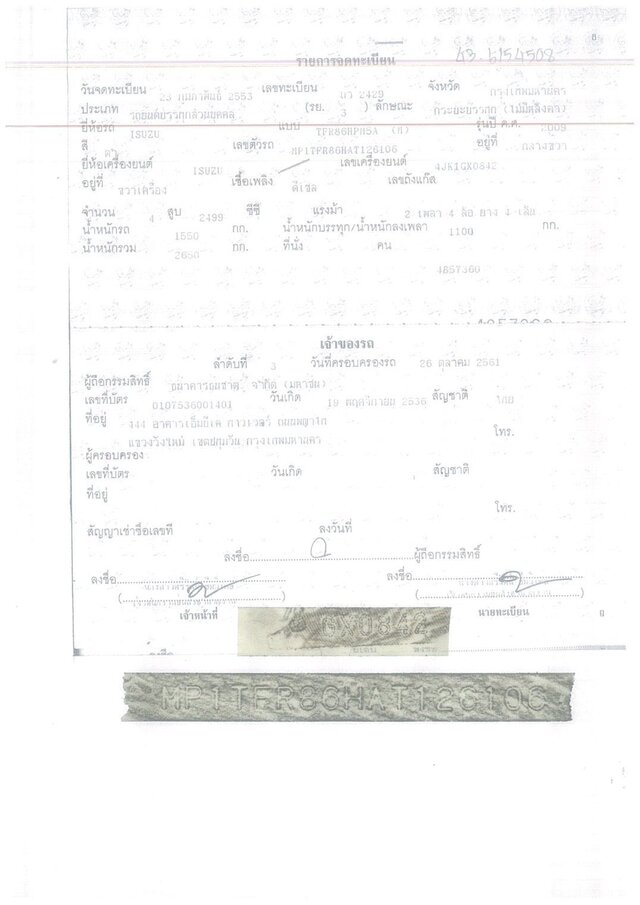 8
รายการจดทะเบียน 43-6154508
วันจดทะเบียน 23 กุมภาพันธ์ 2553 เลขทะเบียน 2429 จังหวัด กรุงเทพมหานคร
ประเภท รถยนต์บรรทุกส่วนบุคคล (รย. 3 ) ลักษณะ กระบะบรรทุก (ไม่มีหลังคา)
ยี่ห้อรถ ISUZU แบบ TFR86HPM5A (H) รุ่นปี ค.ศ. 2009
สี เลขตัวรถ MP1TFR86HAT126106 อยู่ที่ กลางขวา
ยี่ห้อเครื่องยนต์ ISUZU เลขเครื่องยนต์ 4JK1GX0842
อยู่ที่ ขวาเครื่อง เชื้อเพลิง ดีเซล เลขถังแก๊ส
จำนวน 4 สูบ 2499 ซีซี แรงม้า 2 เพลา 4 ล้อ ยาง 4 เส้น
น้ำหนักรถ 1550 กก. น้ำหนักบรรทุก/น้ำหนักลงเพลา 1100 กก.
น้ำหนักรวม 2650 กก. ที่นั่ง คน
4857360
เจ้าของรถ
ลำดับที่ 3 วันที่ครอบครองรถ 26 ตุลาคม 2561
ผู้ถือกรรมสิทธิ์ ธนาคารธนชาต จำกัด (มหาชน)
เลขที่บัตร 0107536001401 วันเกิด 19 พฤศจิกายน 2536 สัญชาติ ไทย
ที่อยู่ 444 อาคารเอ็มบีเค ทาวเวอร์ ถนนพญาไท
แขวงวังใหม่ เขตปทุมวัน กรุงเทพมหานคร โทร.
ผู้ครอบครอง
เลขที่บัตร วันเกิด สัญชาติ
ที่อยู่
โทร.
สัญญาเช่าซื้อเลขที่ ลงวันที่
ลงชื่อ ผู้ถือกรรมสิทธิ์
ลงชื่อ ลงชื่อ
เจ้าหน้าที่ นายทะเบียน
GX0842
MP1TFR86HAT126106